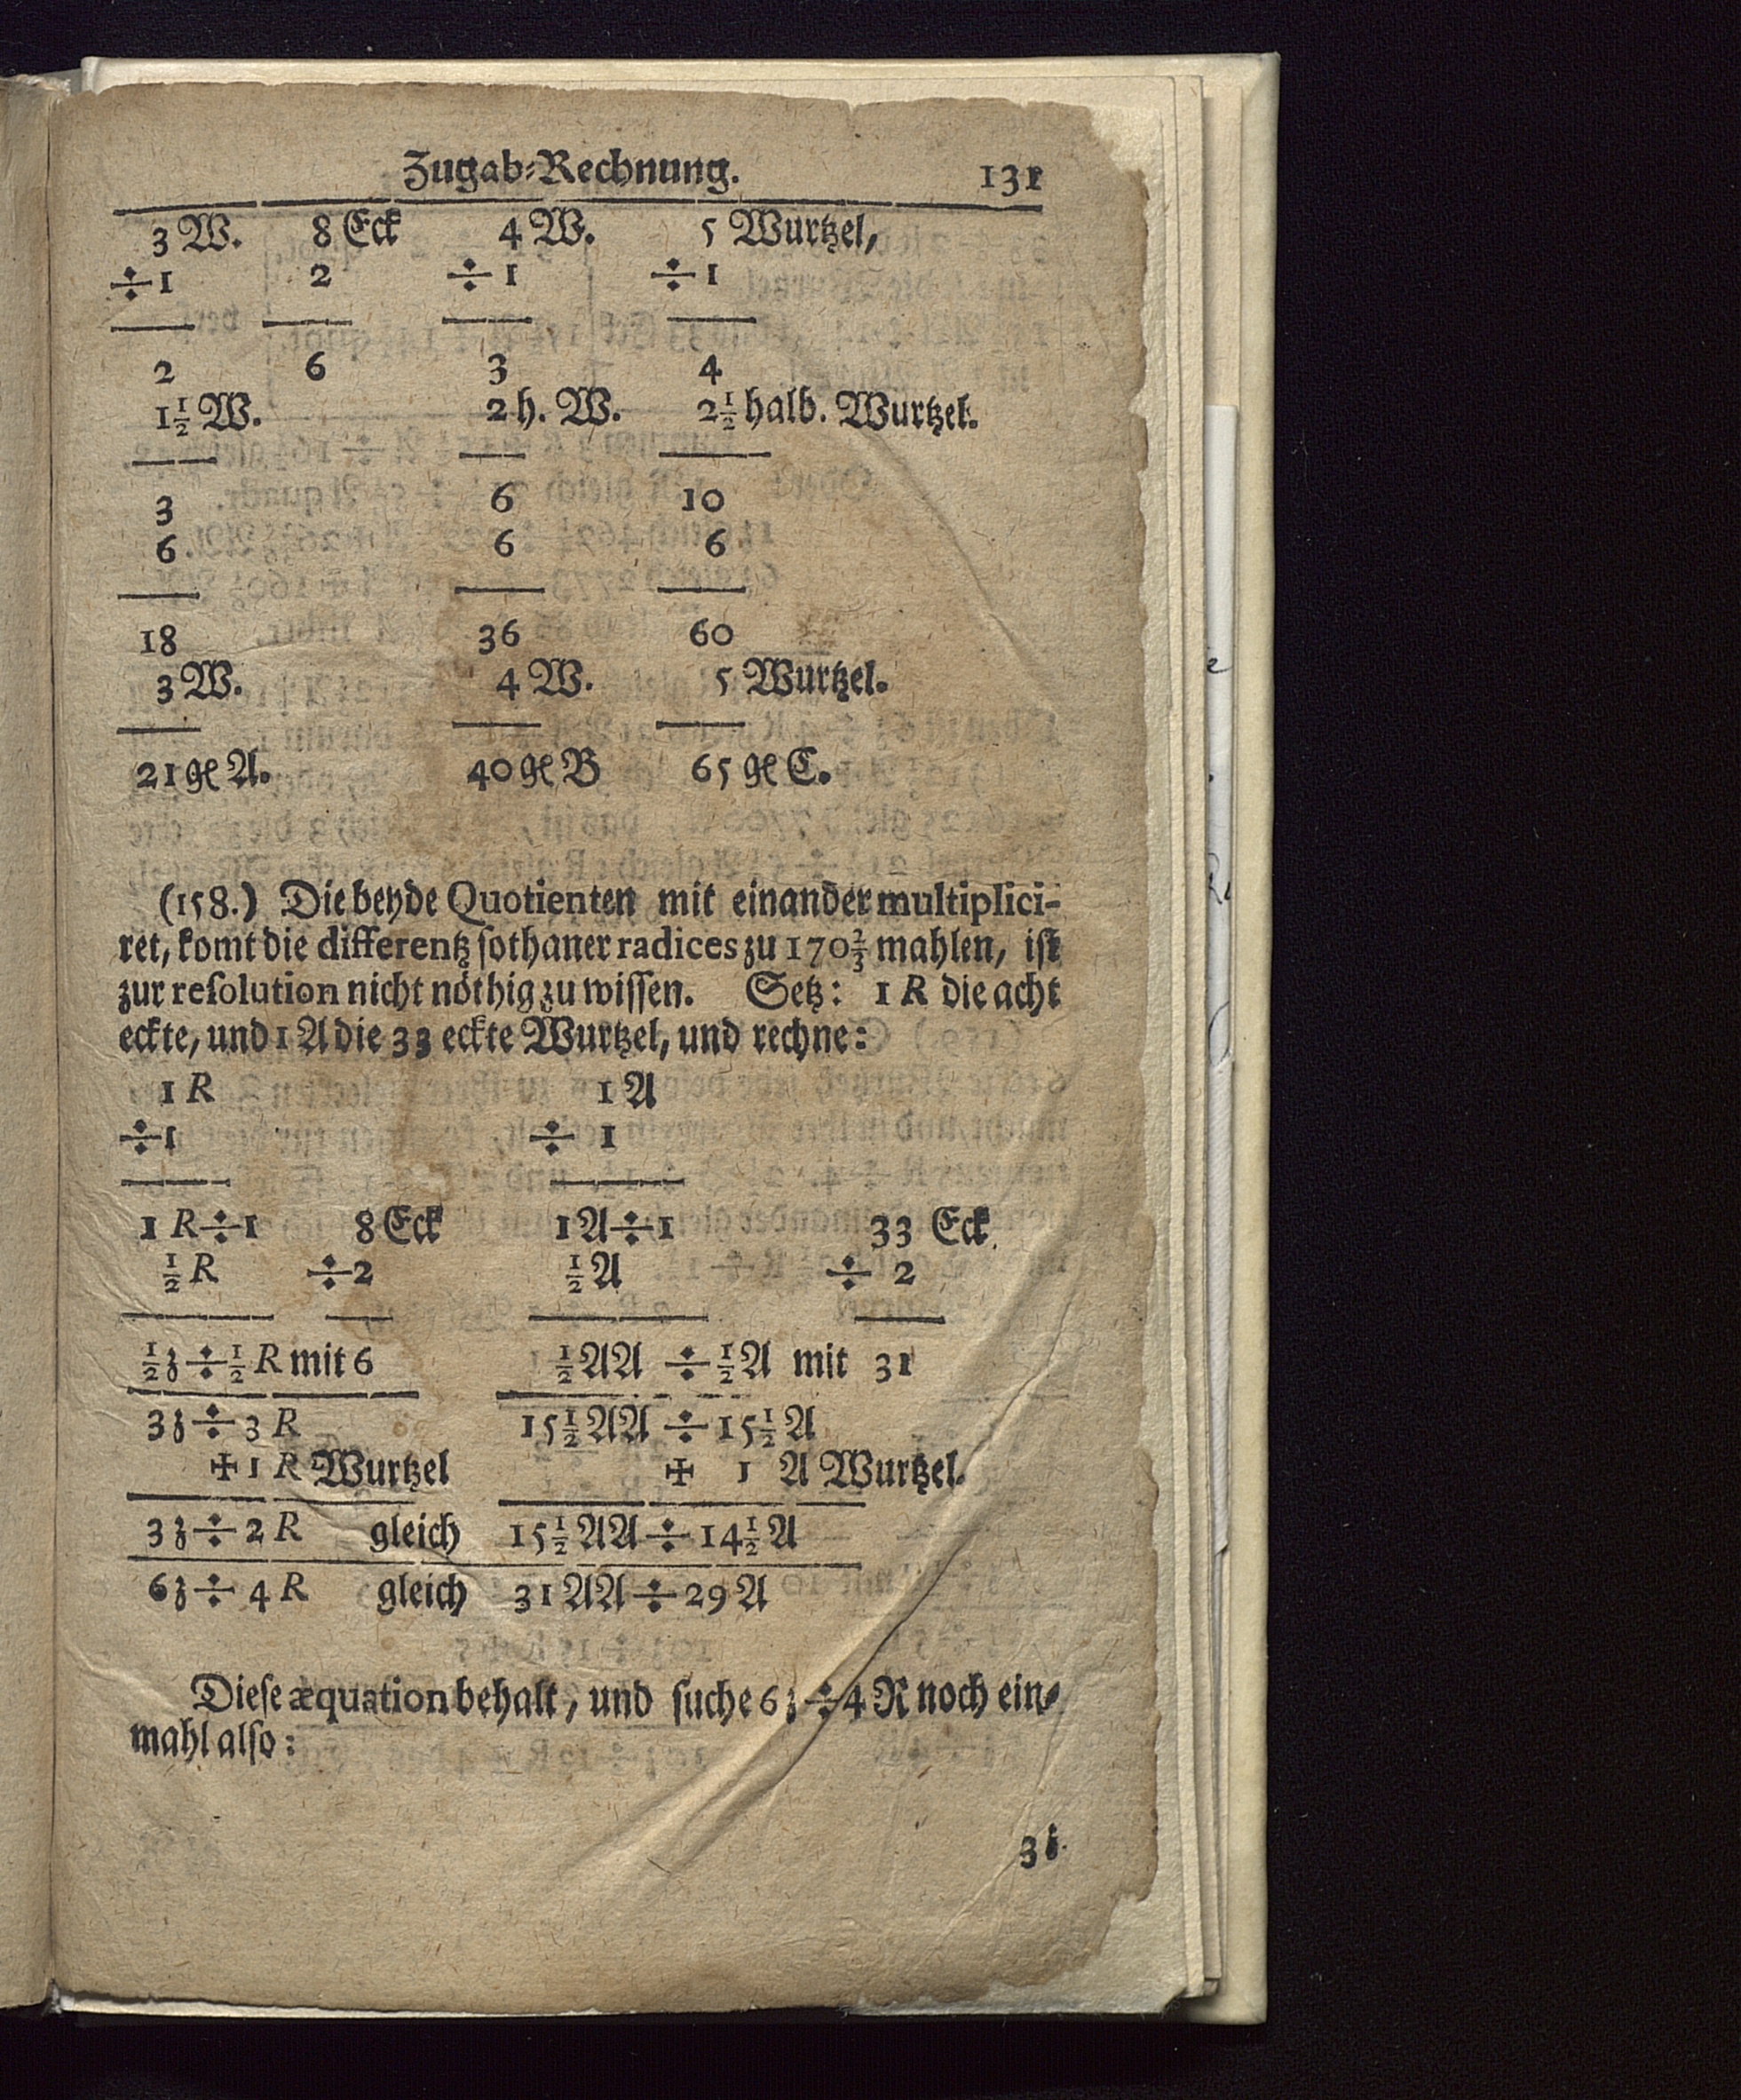 Zugab-Rechnung. 131
3 W. 8 Eck 4 W. 5 Wurtzel,
÷1 2 ÷1 ÷1
2 6 3 4
1½ W. 2 h. W. 2½ halb. Wurtzel.
3 6 10
6 6 6
18 36 60
3 W. 4 W. 5 Wurtzel.
21 gl A. 40 gl B 65 gl C.
(158.) Die beyde Quotienten mit einander multiplici-
ret, komt die differentz sothaner radices zu 170⅔ mahlen, ist
zur resolution nicht nöthig zu wissen. Setz: 1 R die acht
eckte, und 1 A die 33 eckte Wurtzel, und rechne:
1 R 1 A
÷1 ÷ 1
1 R÷1 8 Eck 1 A÷1 33 Eck
½ R ÷2 ½ A ÷ 2
½ʒ÷½ R mit 6 ½AA ÷½A mit 31
3ʒ÷3 R 15½AA÷15½A
+1 R Wurtzel + 1 A Wurtzel.
3ʒ÷2 R gleich 15½AA÷14½A
6ʒ÷4 R gleich 31AA÷29A
Diese æquation behalt, und suche 6ʒ÷4 R noch ein-
mahl also: